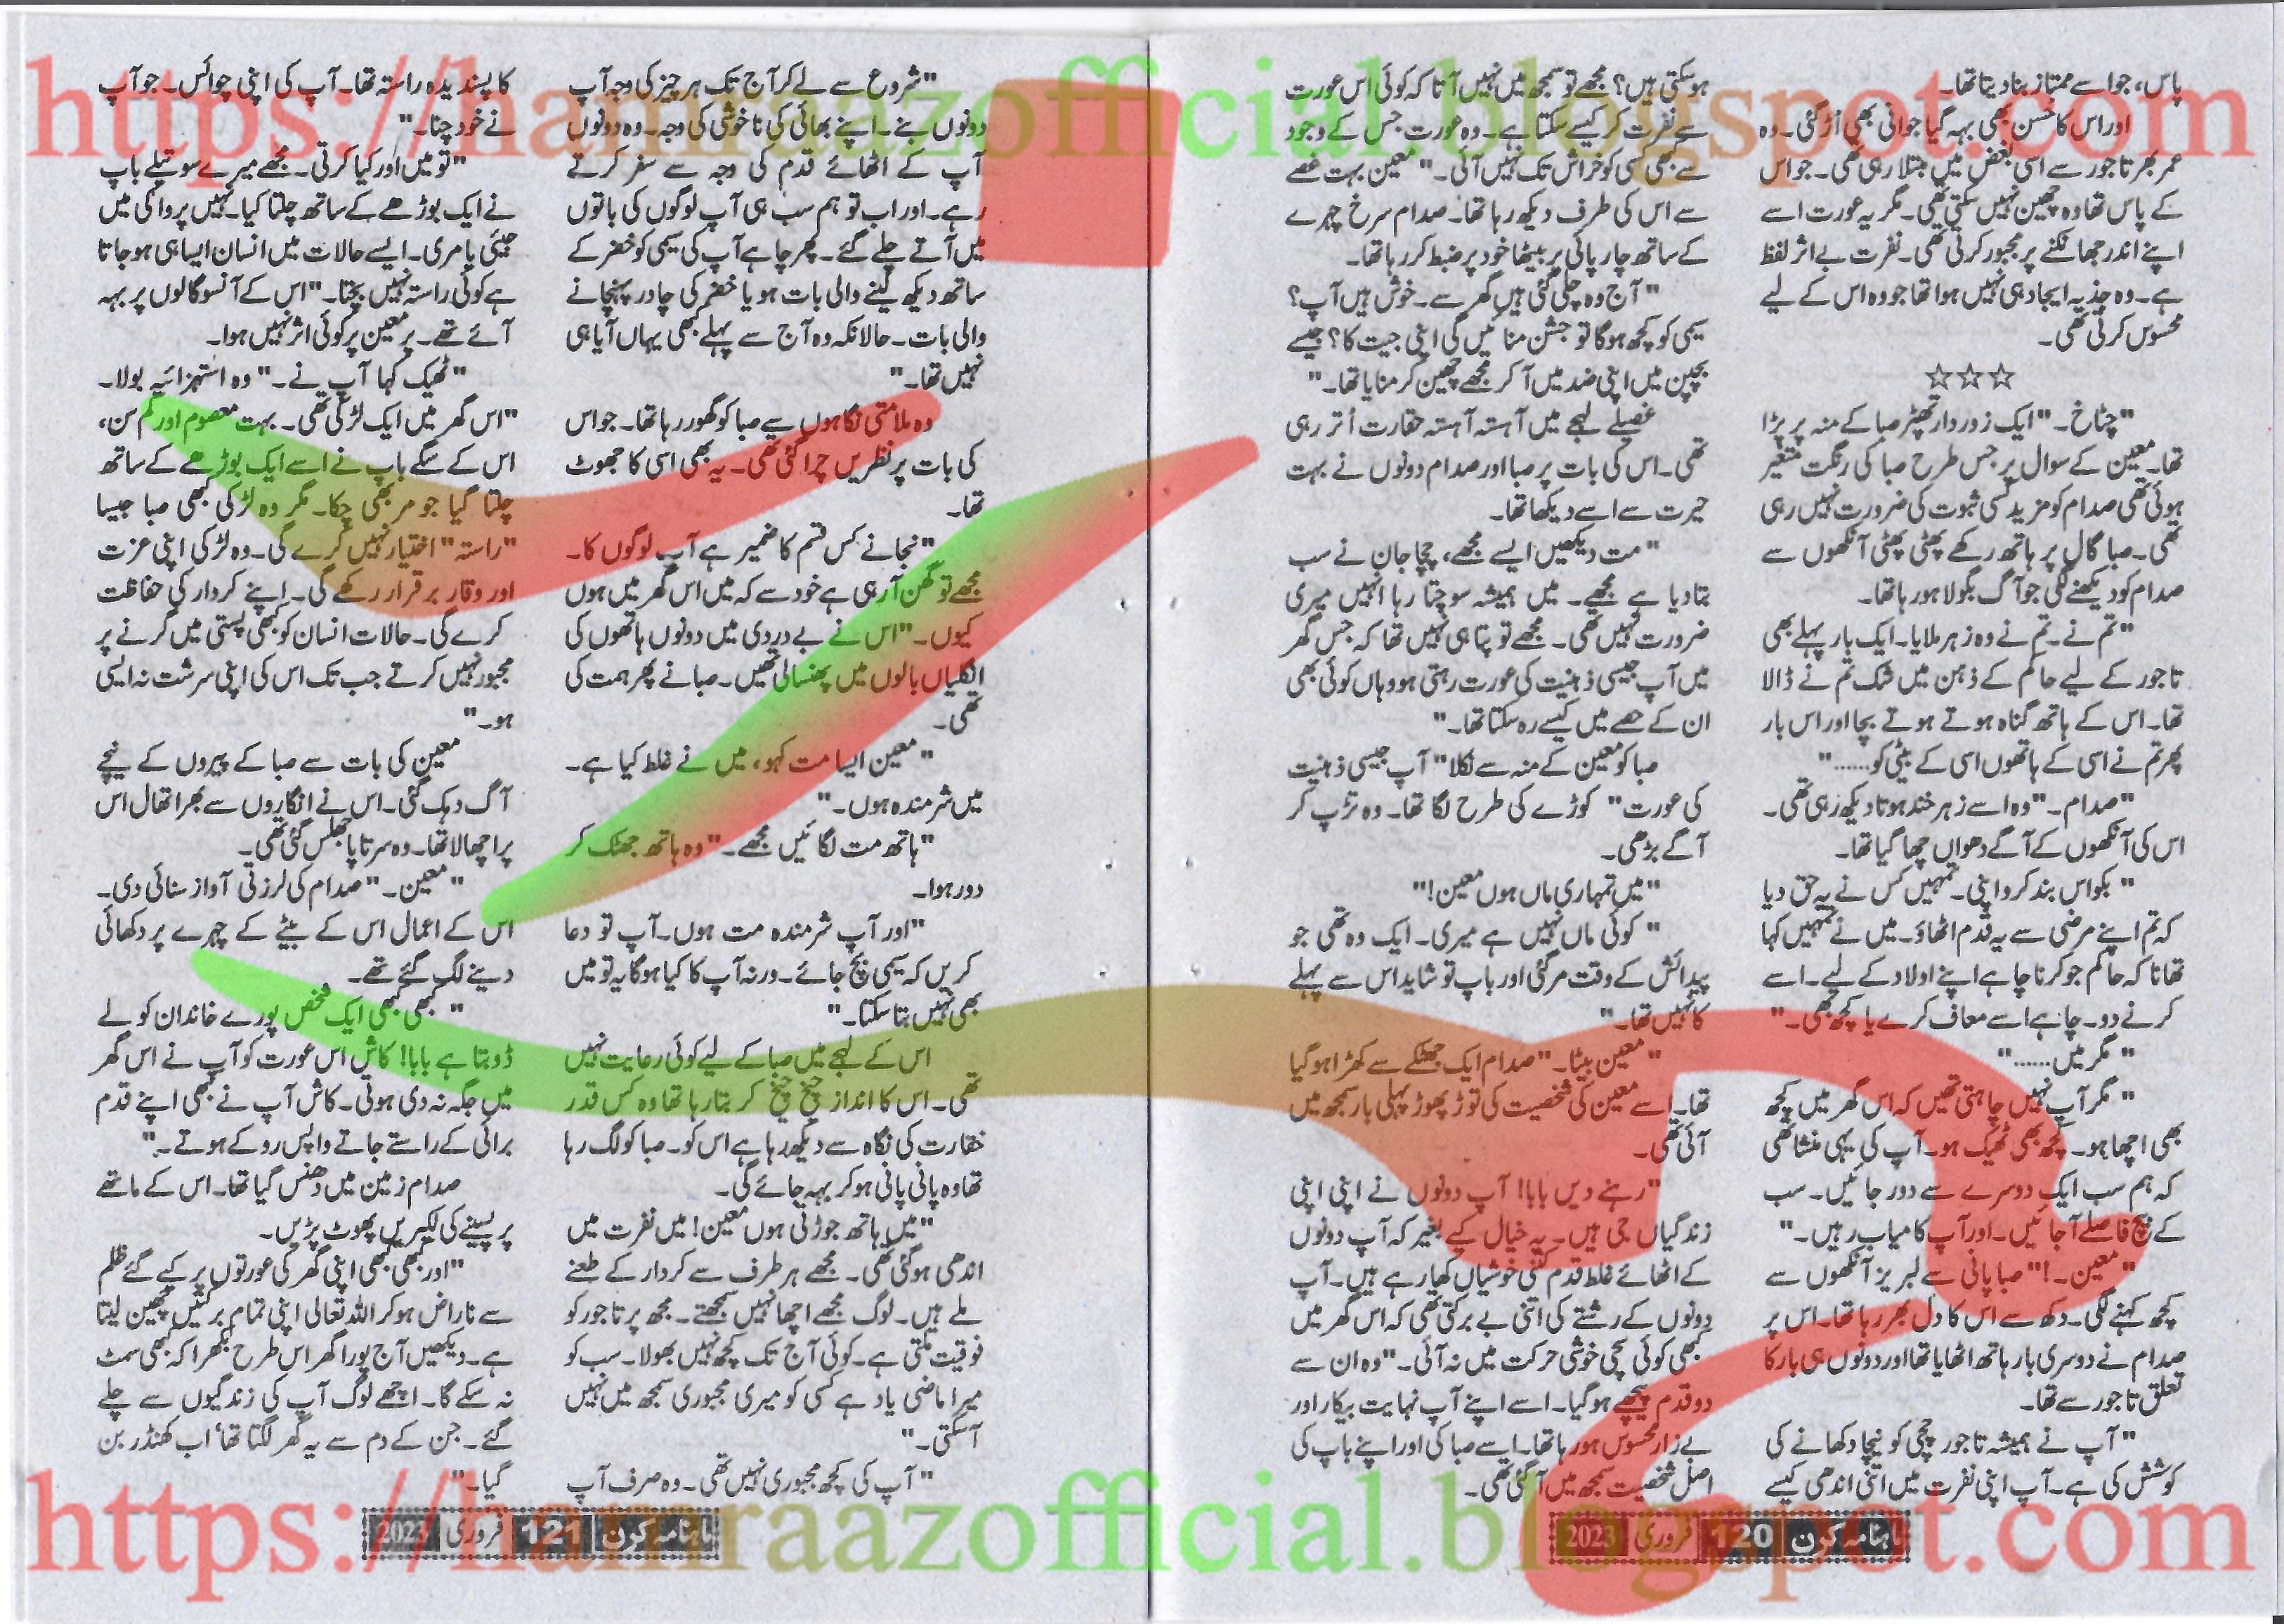 https://hamraazofficial.blogspot.com
پاس، جو اسے ممتاز بنا دیتا تھا۔
اور اس کا حسن بھی بہہ گیا جوانی بھی اڑ گئی۔ وہ
عمر بھر تاجور سے اسی بغض میں مبتلا رہی تھی۔ جو اس
کے پاس تھا وہ چھین نہیں سکتی تھی۔ مگر یہ عورت اسے
اپنے اندر جھانکنے پر مجبور کرتی تھی۔ نفرت بے اثر لفظ
ہے۔ وہ جذبہ ایجاد ہی نہیں ہوا تھا جو وہ اس کے لیے
محسوس کرتی تھی۔
☆☆☆
"چٹاخ۔" ایک زور دار تھپڑ صبا کے منہ پر پڑا
تھا۔ معین کے سوال پر جس طرح صبا کی رنگت متغیر
ہوئی تھی صدام کو مزید کسی ثبوت کی ضرورت نہیں رہی
تھی۔ صبا گال پر ہاتھ رکھے پھٹی پھٹی آنکھوں سے
صدام کو دیکھنے لگی جو آگ بگولا ہو رہا تھا۔
"تم نے۔ تم نے وہ زہر ملایا۔ ایک بار پہلے بھی
تاجور کے لیے حاکم کے ذہن میں شک تم نے ڈالا
تھا۔ اس کے ہاتھ گناہ ہوتے ہوتے بچا اور اس بار
پھر تم نے اسی کے ہاتھوں اسی کے بیٹی کو......"
"صدام۔" وہ اسے زہر خند ہوتا دیکھ رہی تھی۔
اس کی آنکھوں کے آگے دھواں چھا گیا تھا۔
"بکواس بند کرو اپنی۔ تمہیں کس نے یہ حق دیا
کہ تم اپنے مرضی سے یہ قدم اٹھاؤ۔ میں نے تمہیں کہا
تھا نا کہ حاکم جو کرنا چاہے اپنے اولاد کے لیے۔ اسے
کرنے دو۔ چاہے اسے معاف کرے یا کچھ بھی۔"
"مگر میں......"
"مگر آپ نہیں چاہتی تھیں کہ اس گھر میں کچھ
بھی اچھا ہو۔ کچھ بھی ٹھیک ہو۔ آپ کی یہی منشا تھی
کہ ہم سب ایک دوسرے سے دور جائیں۔ سب
کے بیچ فاصلے آ جائیں۔ اور آپ کامیاب رہیں۔"
"معین۔!" صبا پانی سے لبریز آنکھوں سے
کچھ کہنے لگی۔ دکھ سے اس کا دل بھر رہا تھا۔ اس پر
صدام نے دوسری بار ہاتھ اٹھایا تھا اور دونوں ہی بار کا
تعلق تاجور سے تھا۔
"آپ نے ہمیشہ تاجور چچی کو نیچا دکھانے کی
کوشش کی ہے۔ آپ اپنی نفرت میں اتنی اندھی کیسے
ہو سکتی ہیں؟ مجھے تو سمجھ میں نہیں آتا کہ کوئی اس عورت
سے نفرت کر کیسے سکتا ہے۔ وہ عورت جس کے وجود
سے کبھی کسی کو خراش تک نہیں آئی۔" معین بہت غصے
سے اس کی طرف دیکھ رہا تھا۔ صدام سرخ چہرے
کے ساتھ چارپائی پر بیٹھا خود پر ضبط کر رہا تھا۔
"آج وہ چلی گئی ہیں گھر سے۔ خوش ہیں آپ؟
سیمی کو کچھ ہوگا تو جشن منائیں گی اپنی جیت کا؟ جیسے
بچپن میں اپنی ضد میں آ کر مجھے چھین کر منایا تھا۔"
غصیلے لہجے میں آہستہ آہستہ حقارت اُتر رہی
تھی۔ اس کی بات پر صبا اور صدام دونوں نے بہت
حیرت سے اسے دیکھا تھا۔
"مت دیکھیں ایسے مجھے، چچا جان نے سب
بتا دیا ہے مجھے۔ میں ہمیشہ سوچتا رہا انہیں میری
ضرورت نہیں تھی۔ مجھے تو پتا ہی نہیں تھا کہ جس گھر
میں آپ جیسی ذہنیت کی عورت رہتی ہو وہاں کوئی بھی
ان کے حصے میں کیسے رہ سکتا تھا۔"
صبا کو معین کے منہ سے نکلا "آپ جیسی ذہنیت
کی عورت" کوڑے کی طرح لگا تھا۔ وہ تڑپ کر
آگے بڑھی۔
"میں تمہاری ماں ہوں معین!"
"کوئی ماں نہیں ہے میری۔ ایک وہ تھی جو
پیدائش کے وقت مر گئی اور باپ تو شاید اس سے پہلے
کا نہیں تھا۔"
"معین بیٹا۔" صدام ایک جھٹکے سے کھڑا ہو گیا
تھا۔ اسے معین کی شخصیت کی توڑ پھوڑ پہلی بار سمجھ میں
آئی تھی۔
"رہنے دیں بابا! آپ دونوں نے اپنی اپنی
زندگیاں جی ہیں۔ یہ خیال کیے بغیر کہ آپ دونوں
کے اٹھائے غلط قدم کتنی خوشیاں کھا رہے ہیں۔ آپ
دونوں کے رشتے کی اتنی بے برکتی تھی کہ اس گھر میں
کبھی کوئی سچی خوشی حرکت میں نہ آئی۔" وہ ان سے
دو قدم پیچھے ہو گیا۔ اسے اپنے آپ نہایت بیکار اور
بے زار محسوس ہو رہا تھا۔ اسے صبا کی اور اپنے باپ کی
اصل شخصیت سمجھ میں آ گئی تھی۔
ماہنامہ کرن 120 فروری 2023
"شروع سے لے کر آج تک ہر چیز کی وجہ آپ
دونوں بنے۔ اپنے بھائی کی ناخوشی کی وجہ۔ وہ دونوں
آپ کے اٹھائے قدم کی وجہ سے سفر کرتے
رہے۔ اور اب تو ہم سب ہی آپ لوگوں کی باتوں
میں آتے چلے گئے۔ پھر چاہے آپ کی سیمی کو خضر کے
ساتھ دیکھ لینے والی بات ہو یا خضر کی چادر پہنچانے
والی بات۔ حالانکہ وہ آج سے پہلے کبھی یہاں آیا ہی
نہیں تھا۔"
وہ ملامتی نگاہوں سے صبا کو گھور رہا تھا۔ جو اس
کی بات پر نظریں چرا گئی تھی۔ یہ بھی اسی کا جھوٹ
تھا۔
"نجانے کس قسم کا ضمیر ہے آپ لوگوں کا۔
مجھے تو گھن آ رہی ہے خود سے کہ میں اس گھر میں ہوں
کیوں۔" اس نے بے دردی میں دونوں ہاتھوں کی
انگلیاں بالوں میں پھنسالی تھیں۔ صبا نے پھر ہمت کی
تھی۔
"معین ایسا مت کہو، میں نے غلط کیا ہے۔
میں شرمندہ ہوں۔"
"ہاتھ مت لگائیں مجھے۔" وہ ہاتھ جھٹک کر
دور ہوا۔
"اور آپ شرمندہ مت ہوں۔ آپ تو دعا
کریں کہ سیمی بچ جائے۔ ورنہ آپ کا کیا ہوگا یہ تو میں
بھی نہیں بتا سکتا۔"
اس کے لہجے میں صبا کے لیے کوئی رعایت نہیں
تھی۔ اس کا انداز چیخ چیخ کر بتا رہا تھا وہ کس قدر
حقارت کی نگاہ سے دیکھ رہا ہے اس کو۔ صبا کو لگ رہا
تھا وہ پانی پانی ہو کر بہہ جائے گی۔
"میں ہاتھ جوڑتی ہوں معین! میں نفرت میں
اندھی ہو گئی تھی۔ مجھے ہر طرف سے کردار کے طعنے
ملے ہیں۔ لوگ مجھے اچھا نہیں سمجھتے۔ مجھ پر تاجور کو
فوقیت ملتی ہے۔ کوئی آج تک کچھ نہیں بھولا۔ سب کو
میرا ماضی یاد ہے کسی کو میری مجبوری سمجھ میں نہیں
آسکتی۔"
"آپ کی کچھ مجبوری نہیں تھی۔ وہ صرف آپ
کا پسندیدہ راستہ تھا۔ آپ کی اپنی چوائس۔ جو آپ
نے خود چنا۔"
"تو میں اور کیا کرتی۔ مجھے میرے سوتیلے باپ
نے ایک بوڑھے کے ساتھ چلتا کیا۔ نہیں پروا کی میں
جیئی یا مری۔ ایسے حالات میں انسان ایسا ہی ہو جاتا
ہے کوئی راستہ نہیں بچتا۔" اس کے آنسو گالوں پر بہہ
آئے تھے۔ پر معین پر کوئی اثر نہیں ہوا۔
"ٹھیک کہا آپ نے۔" وہ استہزائیہ بولا۔
"اس گھر میں ایک لڑکی تھی۔ بہت معصوم اور کم سن،
اس کے سگے باپ نے اسے ایک بوڑھے کے ساتھ
چلتا گیا جو مر بھی چکا۔ مگر وہ لڑکی کبھی صبا جیسا
"راستہ" اختیار نہیں کرے گی۔ وہ لڑکی اپنی عزت
اور وقار برقرار رکھے گی۔ اپنے کردار کی حفاظت
کرے گی۔ حالات انسان کو کبھی پستی میں گرنے پر
مجبور نہیں کرتے جب تک اس کی اپنی سرشت نہ ایسی
ہو۔"
معین کی بات سے صبا کے پیروں کے نیچے
آگ دہک گئی۔ اس نے انگاروں سے بھرا تھال اس
پر اچھالا تھا۔ وہ سرتاپا جھلس گئی تھی۔
"معین۔" صدام کی لرزتی آواز سنائی دی۔
اس کے اعمال اس کے بیٹے کے چہرے پر دکھائی
دینے لگ گئے تھے۔
"کبھی کبھی ایک شخص پورے خاندان کو لے
ڈوبتا ہے بابا! کاش اس عورت کو آپ نے اس گھر
میں جگہ نہ دی ہوتی۔ کاش آپ نے کبھی اپنے قدم
برائی کے راستے جاتے واپس روکے ہوتے۔"
صدام زمین میں دھنس گیا تھا۔ اس کے ماتھے
پر پسینے کی لکیریں پھوٹ پڑیں۔
"اور کبھی کبھی اپنی گھر کی عورتوں پر کیے گئے ظلم
سے ناراض ہو کر اللہ تعالی اپنی تمام برکتیں چھین لیتا
ہے۔ دیکھیں آج پورا گھر اس طرح بکھرا کہ کبھی سمٹ
نہ سکے گا۔ اچھے لوگ آپ کی زندگیوں سے چلے
گئے۔ جن کے دم سے یہ گھر لگتا تھا، اب کھنڈر بن
گیا۔"
ماہنامہ کرن 121 فروری 2023
https://hamraazofficial.blogspot.com